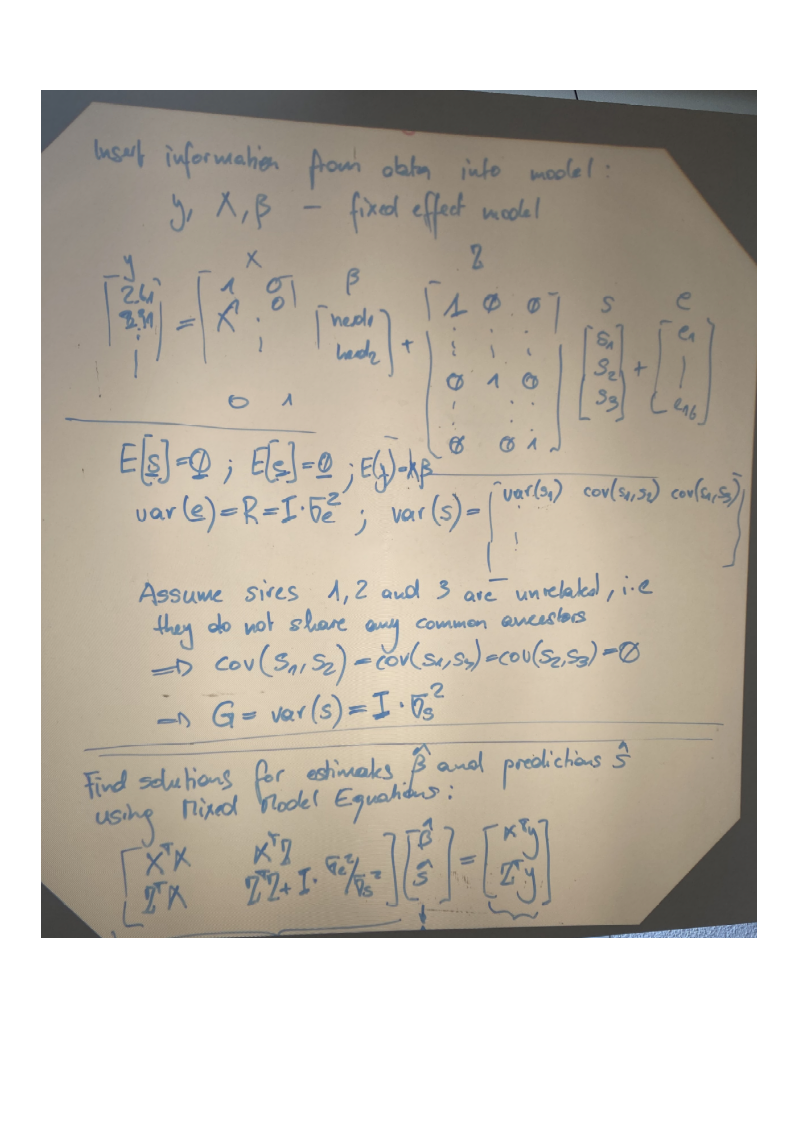 Insert information from data into model:
y, X, β – fixed effect model
y X β Z s e
[2.61 = [1 0 [herd1 + [1 ∅ ∅ [s1 + [e1
X 0 herd2] s2
∅ 1 ∅ s3]
0 1 ∅ ∅ 1] e16]
E[s]=∅ ; E[e]=∅ ; E(y)=Xβ
var(e)=R=I·σe² ; var(s)=[var(s1) cov(s1,s2) cov(s1,s3)]
Assume sires 1,2 and 3 are unrelated, i.e
they do not share any common ancestors
⇒ cov(s1,s2)=cov(s1,s3)=cov(s2,s3)=∅
→ G = var(s) = I·σs²
Find solutions for estimates β̂ and predictions ŝ
using Mixed Model Equations:
[XᵀX XᵀZ ] [β̂] = [Xᵀy]
[ZᵀX ZᵀZ+I·σe²/σs²] [ŝ] [Zᵀy]